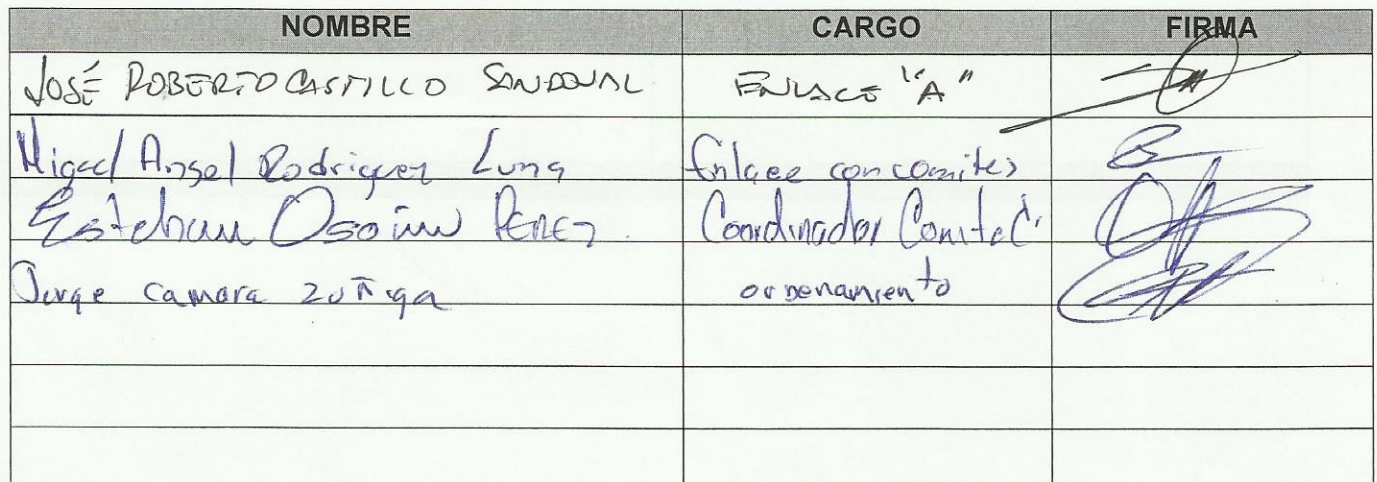 NOMBRE CARGO FIRMA
JOSÉ ROBERTO CASTILLO SANDOVAL ENLACE "A"
Miguel Angel Rodriguez Luna Enlace con comites
Esteban Osorio PEREZ Coordinador
Jorge camara zuñiga ordenamiento